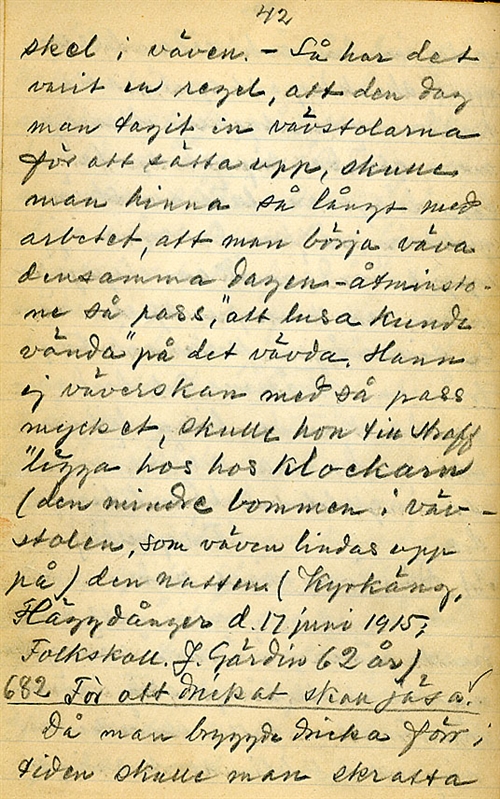 42
skel i väven. – Så har det
varit en regel, att den dag
man tagit in vävstolarna
för att sätta upp, skulle
man hinna så långt med
arbetet, att man börja väva
densamma dagen – åtminsto-
ne så pass, "att lusa kunde
vända" på det vävda. Hann
ej väverskan med så pass
mycket, skulle hon till straff
"ligga hos hos klockarn
(den mindre bommen i väv-
stolen, som väven lindas upp
på) den natten. (Kyrkäng,
Häggdånger d. 17 juni 1915;
Folkskoll. J. Gärdin 62 år)
682 För att drickat skan jäsa.
Då man bryggde dricka förr i
tiden skulle man skratta